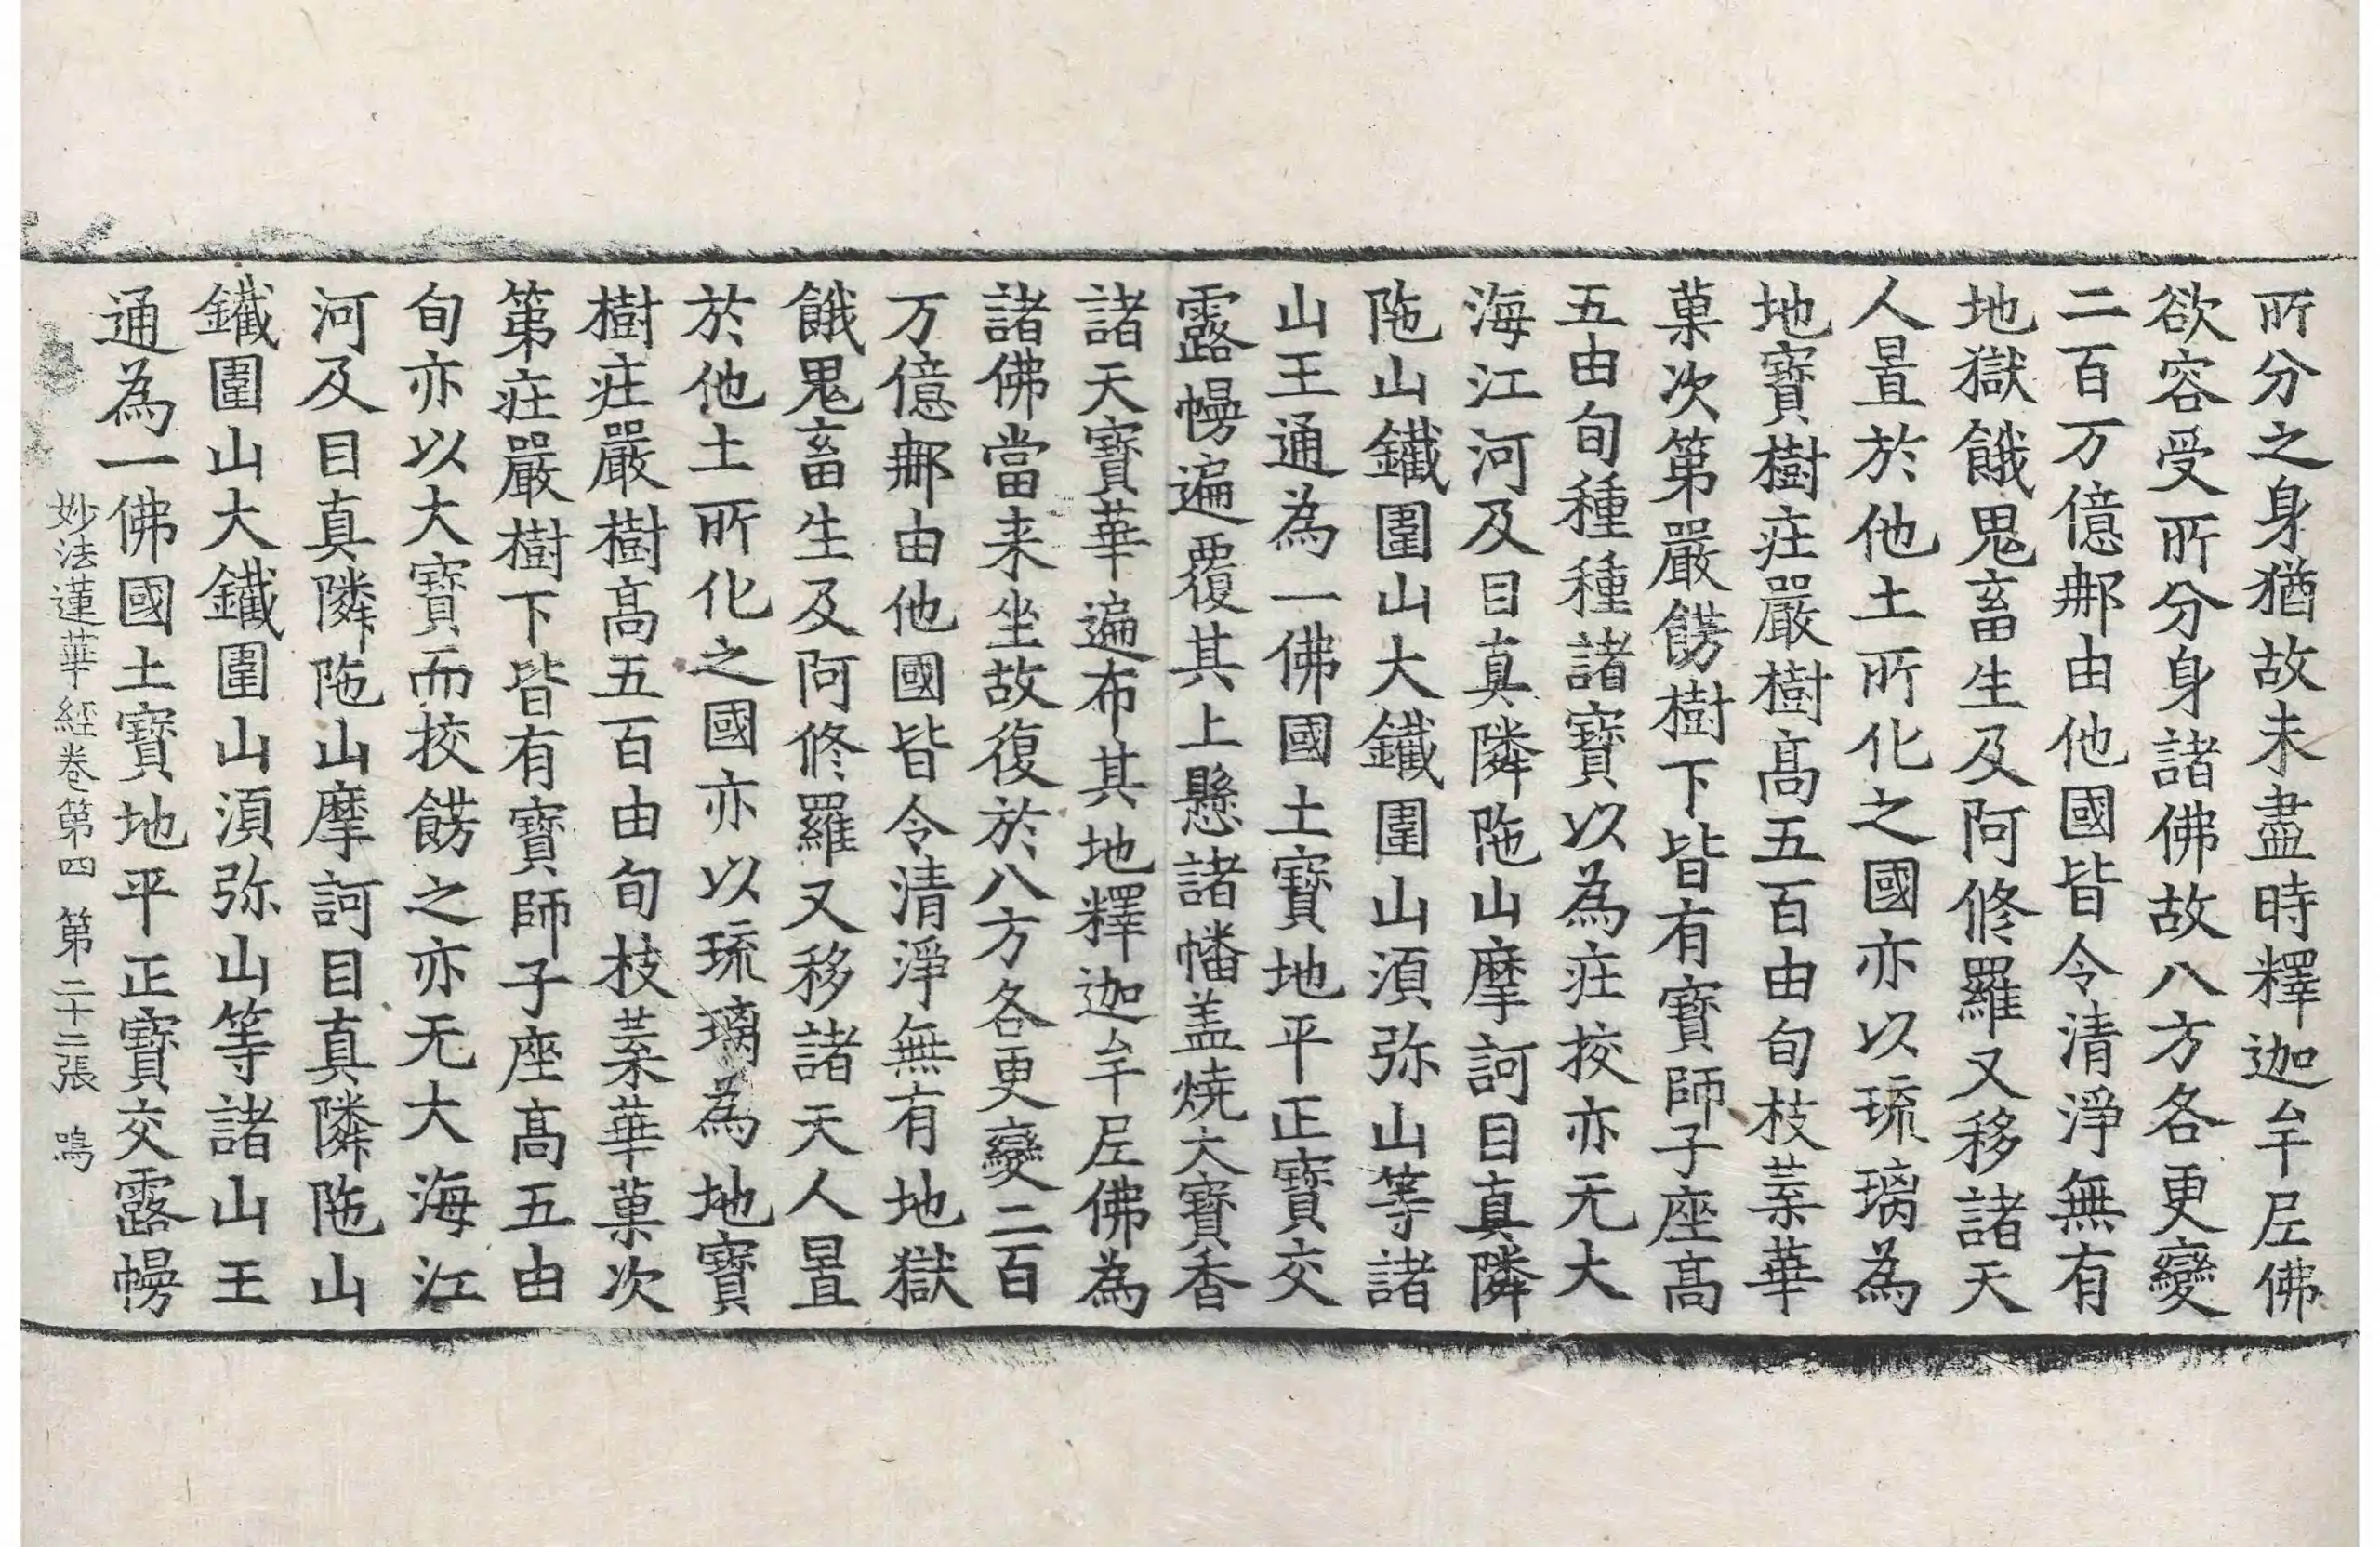 所分之身猶故未盡時釋迦牟尼佛
欲容受所分身諸佛故八方各更變
二百万億𨚗由他國皆令清淨無有
地獄餓鬼畜生及阿修羅又移諸天
人置於他土所化之國亦以琉璃為
地寶樹莊嚴樹高五百由旬枝葉華
菓次第嚴餝樹下皆有寶師子座高
五由旬種種諸寶以為莊挍亦无大
海江河及目真隣陁山摩訶目真隣
陁山鐵圍山大鐵圍山湏弥山等諸
山王通為一佛國土寶地平正寶交
露幔遍覆其上懸諸幡盖燒大寶香
諸天寶華遍布其地釋迦牟尼佛為
諸佛當来坐故復於八方各更變二百
万億𨚗由他國皆令清淨無有地獄
餓鬼畜生及阿修羅又移諸天人置
於他土所化之國亦以琉璃為地寶
樹莊嚴樹高五百由旬枝葉華菓次
第莊嚴樹下皆有寶師子座高五由
旬亦以大寶而挍餝之亦无大海江
河及目真隣陁山摩訶目真隣陁山
鐵圍山大鐵圍山湏弥山等諸山王
通為一佛國土寶地平正寶交露幔
妙法蓮華經卷第四 第二十二張 鳴